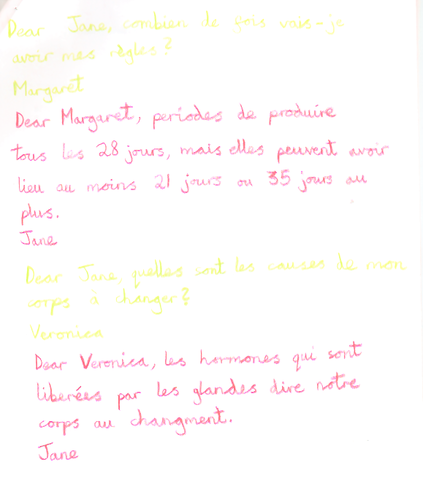 Dear Jane, combien de fois vais-je
avoir mes règles?
Margaret
Dear Margaret, periodes de produire
tous les 28 jours, mais elles peuvent avoir
lieu au moins 21 jours ou 35 jours au
plus.
Jane
Dear Jane, quelles sont les causes de mon
corps à changer?
Veronica
Dear Veronica, les hormones qui sont
liberées par les glandes dire notre
corps au changment.
Jane